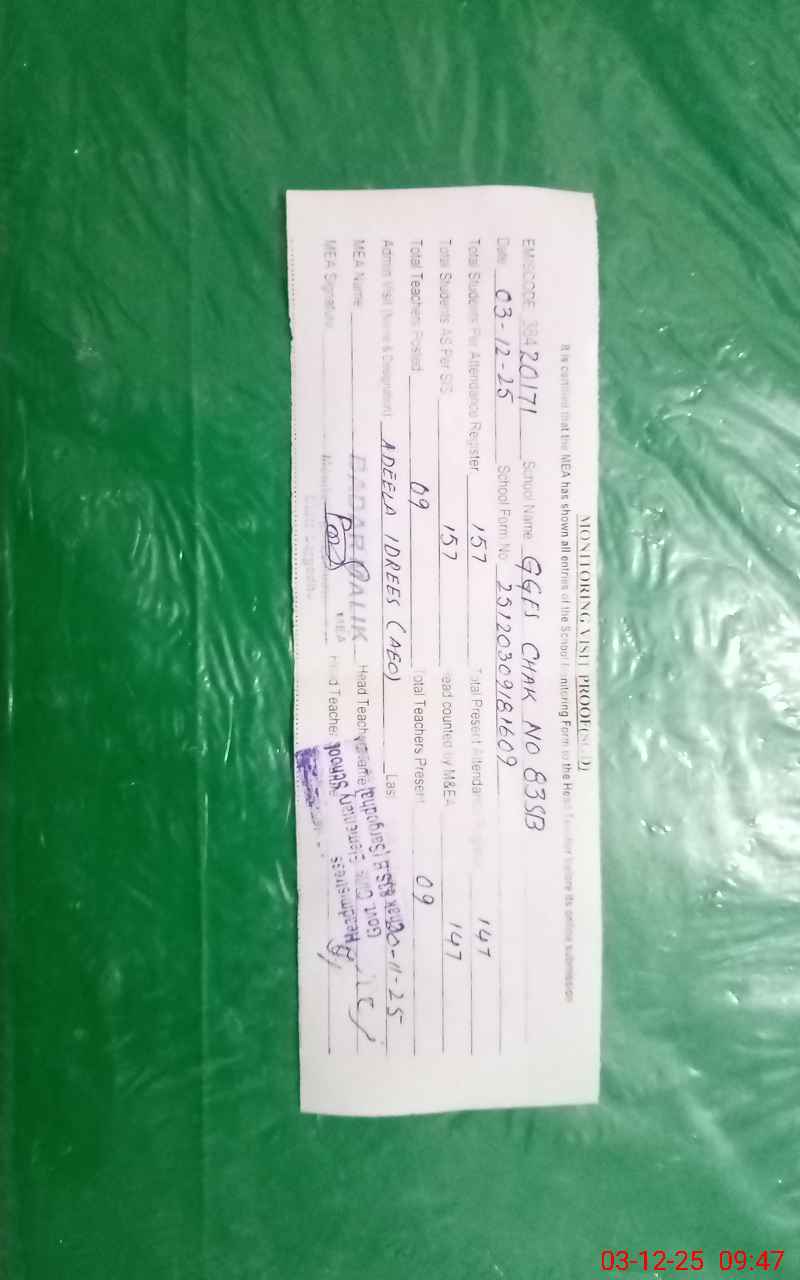 MONITORING VISIT PROOF(SED)
It is certified that the MEA has shown all entries of the School Monitoring Form to the Head Teacher before its online submission
EMISCODE 38420171 School Name GGES CHAK NO 83SB
Date 03-12-25 School Form No 25120309181609
Total Students Per Attendance Register 157 Total Present Attendance
Total Students AS Per SIS 157 Head counted by M&EA 147
147
Total Teachers Posted 09 Total Teachers Present 09
Admin Visit (Name & Designation) ADEELA IDREES (AEO) Last 20-11-25
MEA Name MALIK Head Teacher Name
MEA
MEA Signature Head Teacher
Headmistress
Govt. Girls Elementary School
Chak Sargodha
03-12-25 09:47